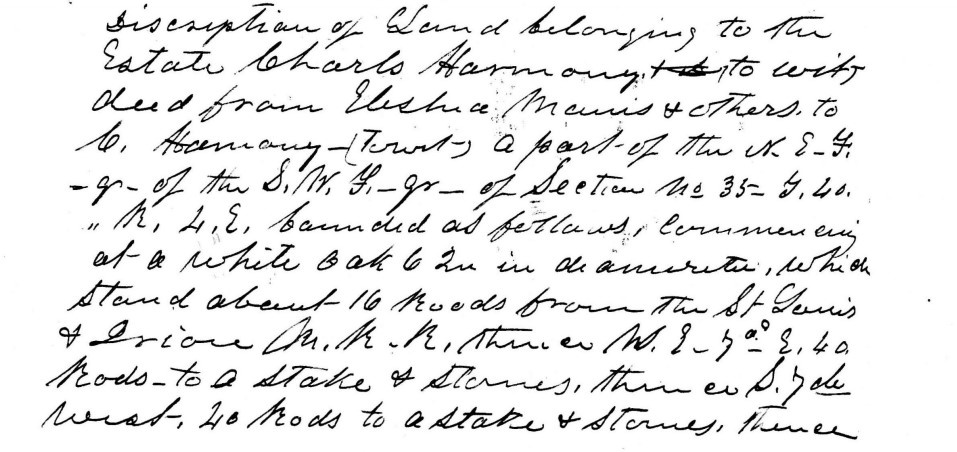 Discription of Land belonging to the
Estate Charls Harmony, to wit,
deed from Eleshua Manis & others. to
C. Hamony - (Towit) a part of the N. E. F.
- qr - of the S. W. F. - qr - of Section No 35 - T. 40.
" R. 4. E. bounded as follows, Commencing
at a white oak 6 In in deamureter, which
stand about 16 Roods from the St Louis
& Irion M. R. R. thence N. E. 7 do E. 40
Rods - to a stake & stones, thence S. 7 de
west, 40 Rods to a stake & stones, thence